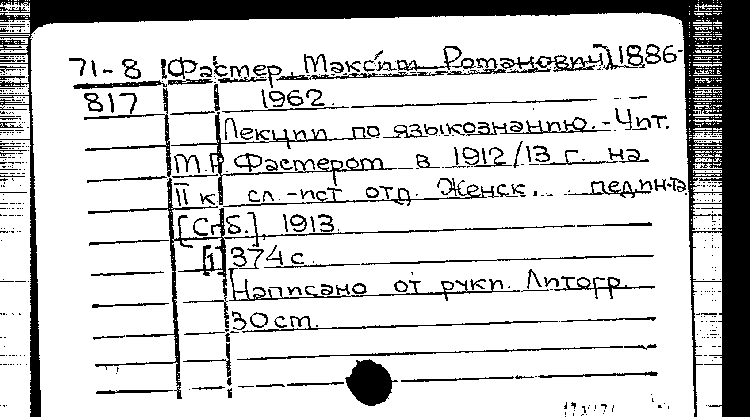 71-8 [Фасмер, Максим Романович] 1886-
817 1962
Лекции по языкознанию. - Чит.
М.Р. Фасмером в 1912/13 г. на
II к. сл.-ист отд. Женск. пед.ин-та
[Спб.], 1913
[1] 374 с.
Написано от руки. Литогр.
30 см.